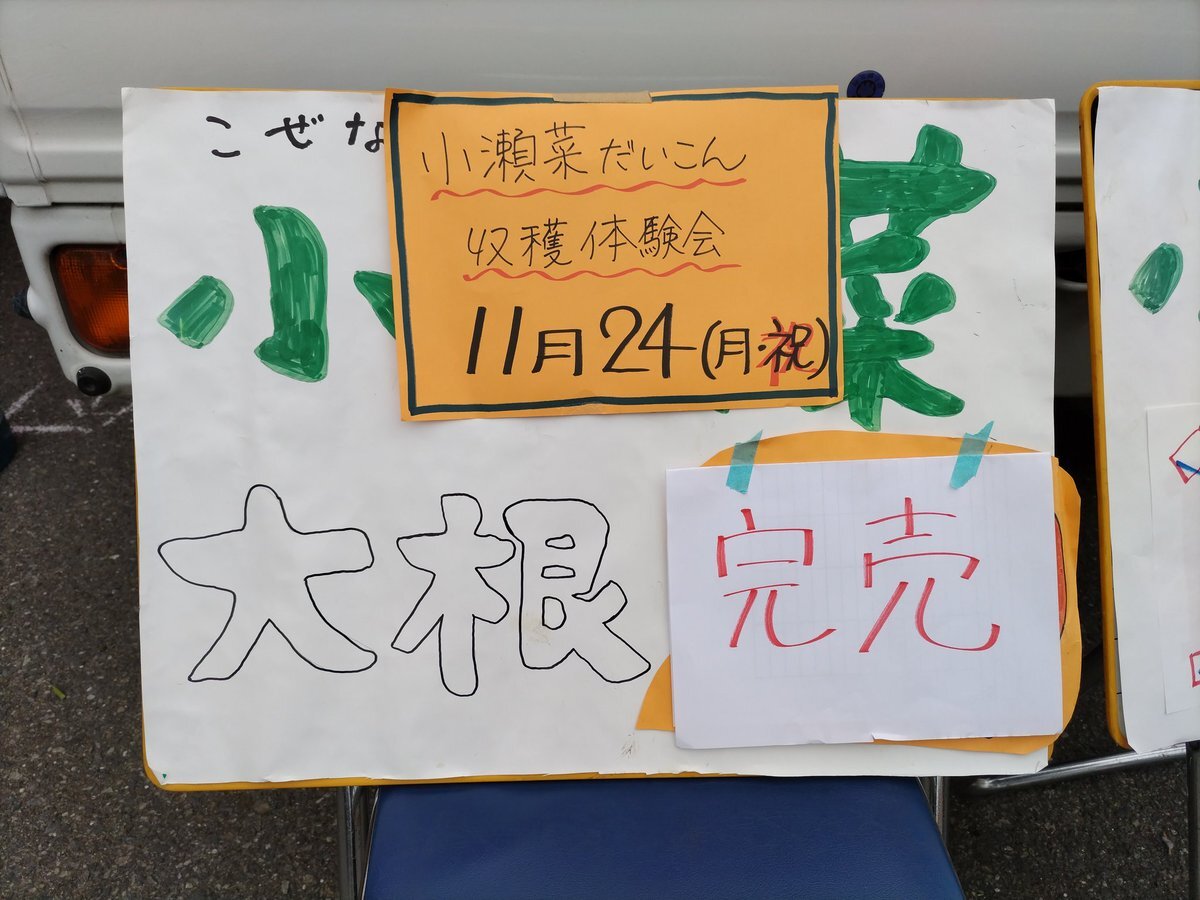 こぜな
小瀬菜だいこん
収穫体験会
11月24(月・祝)
小 菜
大根
完売